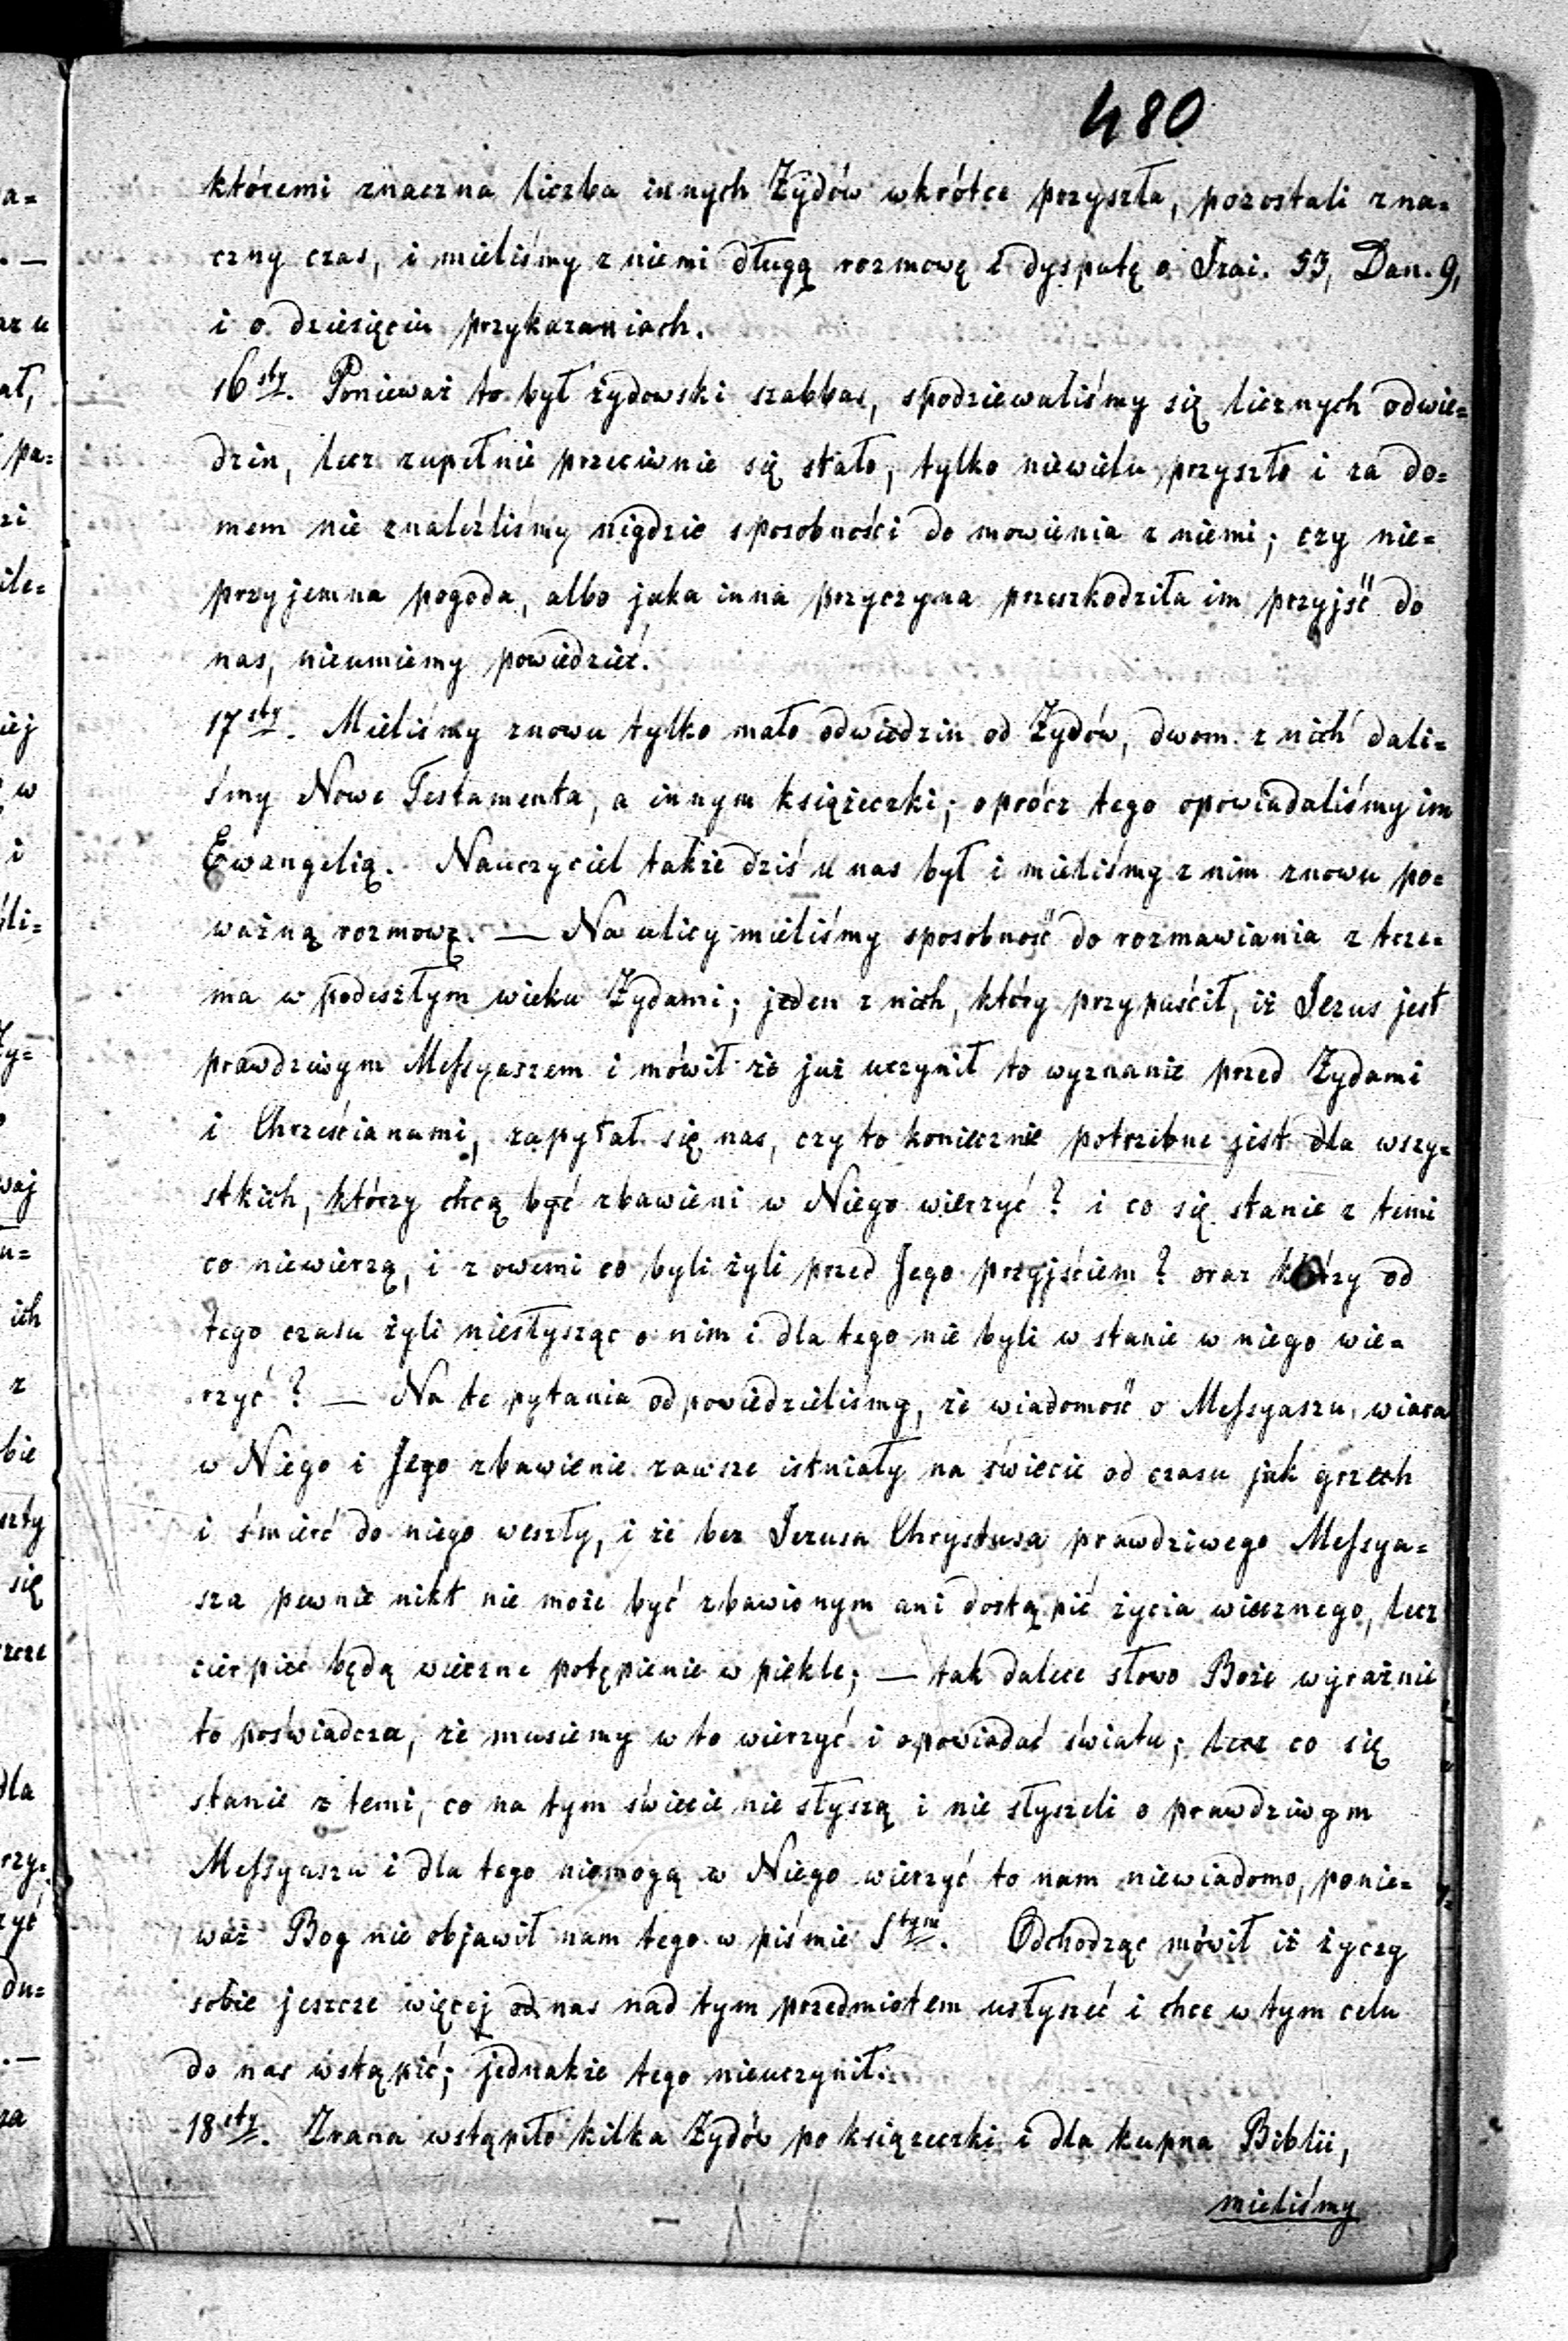 480
któremi znaczna liczba innych Żydów wkrótce przyszła, pozostali zna=
czny czas, i mieliśmy z niemi długą rozmowę i dysputę o Izai. 53, Dan. 9,
i o dziesięciu przykazaniach.
16sty. Ponieważ to był żydowski szabbas, spodziewaliśmy się licznych odwie=
dzin, lecz zupełnie przeciwnie się stało, tylko niewielu przyszło i za do=
mem nie znaleźliśmy nigdzie sposobności do mowienia z niemi; czy nie=
przyjemna pogoda, albo jaka inna przyczyna przeszkodziła im przyjść do
nas, nieumiemy powiedzieć.
17sty. Mieliśmy znowu tylko mało odwiedzin od Żydów, dwom z nich dali=
śmy Nowe Testamenta, a innym książeczki; oprócz tego opowiadaliśmy im
Ewangelią. Nauczyciel także dziś u nas był i mieliśmy z nim znowu po=
ważną rozmowę. — Na ulicy mieliśmy sposobność do rozmawiania z trze=
ma w podeszłym wieku Żydami; jeden z nich, który przypuścił, iż Jezus jest
prawdziwym Messyaszem i mówił że już uczynił to wyznanie przed Żydami
i Chrześcianami, zapytał się nas, czy to koniecznie potrzebne jest dla wszy=
stkich, którzy chcą być zbawieni w Niego wierzyć? i co się stanie z temi
co niewierzą, i z owemi co byli żyli przed Jego przyjściem? oraz którzy od
tego czasu żyli niesłysząc o nim i dla tego nie byli w stanie w niego wie=
rzyć? — Na te pytania odpowiedzieliśmy, że wiadomość o Messyaszu, wiara
w Niego i Jego zbawienie zawsze istniały na świecie od czasu jak grzech
i śmierć do niego weszły, i że bez Jezusa Chrystusa prawdziwego Messya=
sza pewnie nikt nie może być zbawionym ani dostąpić życia wiecznego, lecz
cierpieć będą wieczne potępienie w piekle; — tak dalece słowo Boże wyraźnie
to poświadcza, że musiemy w to wierzyć i opowiadać światu; lecz co się
stanie z temi, co na tym świecie nie słyszą i nie słyszeli o prawdziwym
Messyaszu i dla tego niemogą w Niego wierzyć to nam niewiadomo, ponie=
waż Bog nie objawił nam tego w piśmie Stym. Odchodząc mówił iż życzy
sobie jeszcze więcej od nas nad tym przedmiotem usłyszeć i chce w tym celu
do nas wstąpić; jednakże tego nieuczynił.
18sty. Zrana wstąpiło kilka Żydów po książeczki i dla kupna Biblii,
mieliśmy